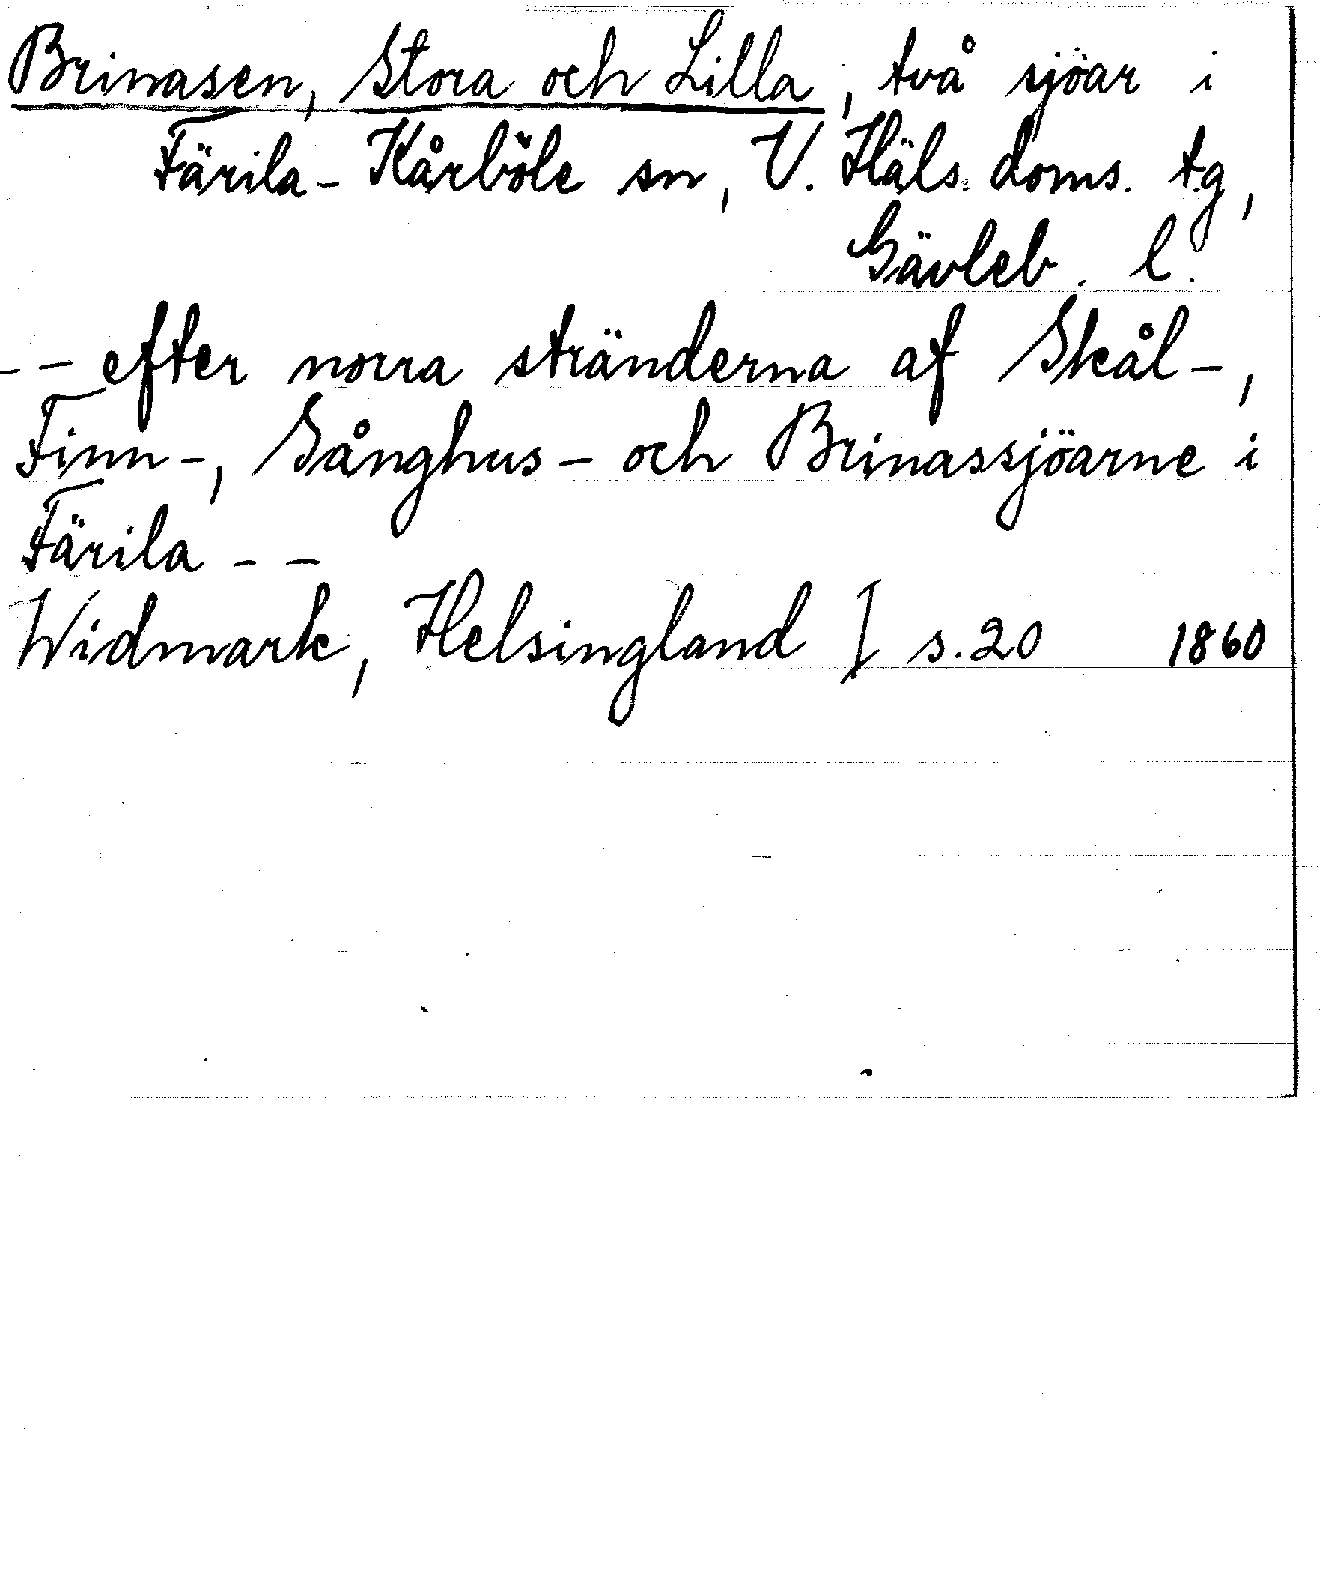 Brinasen, Stora och Lilla, två sjöar i
Färila-Kårböle sn, V. Häls. doms. tg,
Gävleb. l.
-- efter norra stränderna af Skål-,
Finn-, Sånghus- och Brinassjöarne i
Färila --
Widmark, Helsingland I s.20 1860